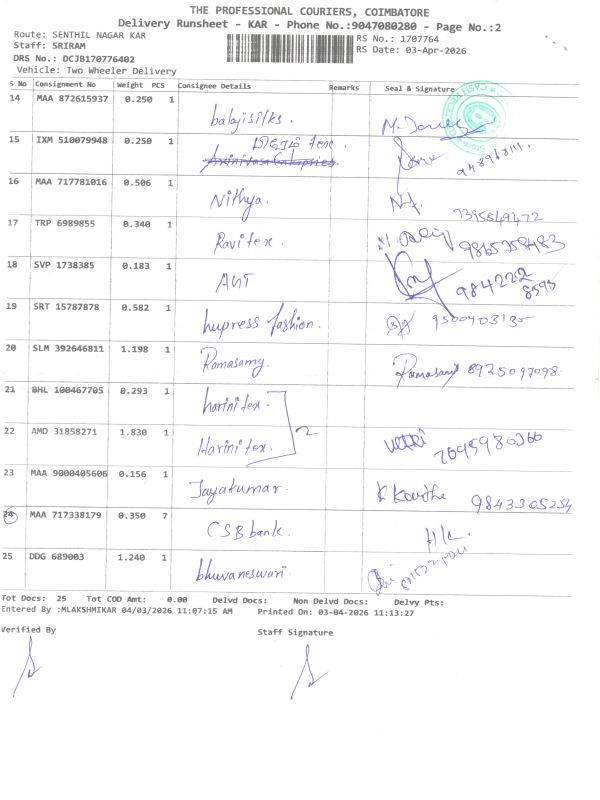 THE PROFESSIONAL COURIERS, COIMBATORE
Delivery Runsheet - KAR - Phone No.:9047080280 - Page No.:2
Route: SENTHIL NAGAR KAR RS No.: 1707764
Staff: SRIRAM RS Date: 03-Apr-2026
DRS No.: DCJB170776402
Vehicle: Two Wheeler Delivery
S No Consignment No Weight PCS Consignee Details Remarks Seal & Signature
14 MAA 872615937 0.250 1
balajisilks.
15 IXM 510079948 0.250 1
tex.
16 MAA 717781016 0.506 1
Nithya.
17 TRP 6989855 0.340 1
Ravitex. 9865258483
18 SVP 1738385 0.183 1
984222
19 SRT 15787878 0.582 1
hupress fashion.
20 SLM 392646811 1.198 1
Ramasamy. Ramasamy 8925097098
21 BHL 100467705 0.293 1
harini tex.
22 AMD 31858271 1.830 1
Harini tex. 2
23 MAA 9000405606 0.156 1
Jayakumar. 9843305254
24 MAA 717338179 0.350 7
CSB bank.
25 DDG 689003 1.240 1
bhuvaneswari.
Tot Docs: 25 Tot COD Amt: 0.00 Delvd Docs: Non Delvd Docs: Delvy Pts:
Entered By :MLAKSHMIKAR 04/03/2026 11:07:15 AM Printed On: 03-04-2026 11:13:27
Verified By Staff Signature